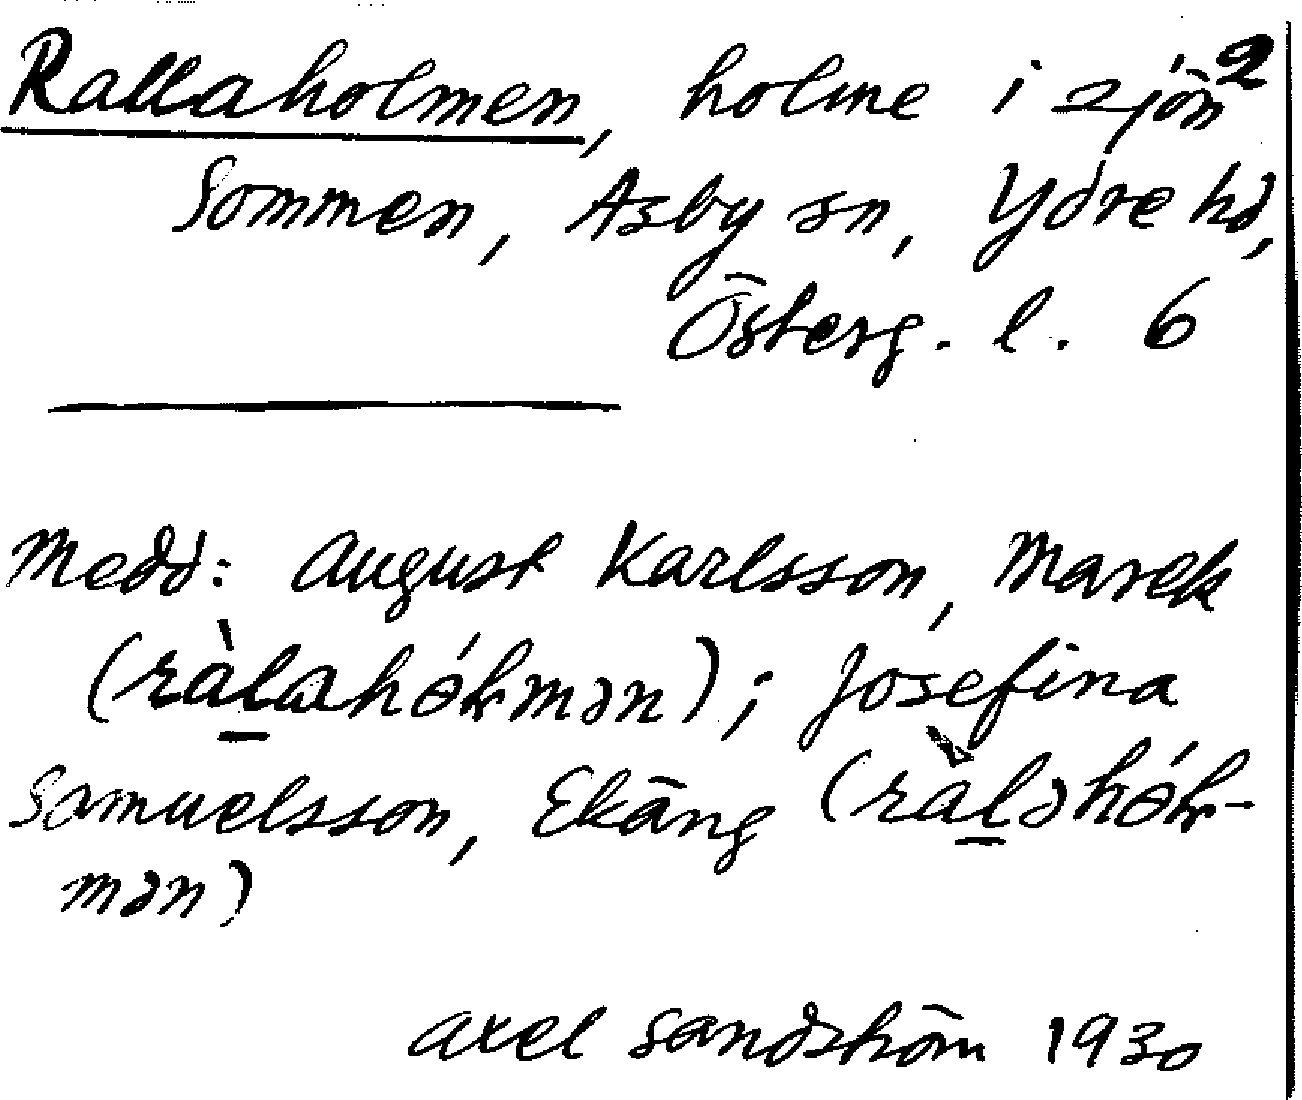 Rallaholmen, holme i sjön 2
Sommen, Asby sn, Ydre hd,
Österg. l. 6
Medd: August Karlsson, Marek
Josefina
Samuelsson, Ekäng
mən)
Axel Sandström 1930